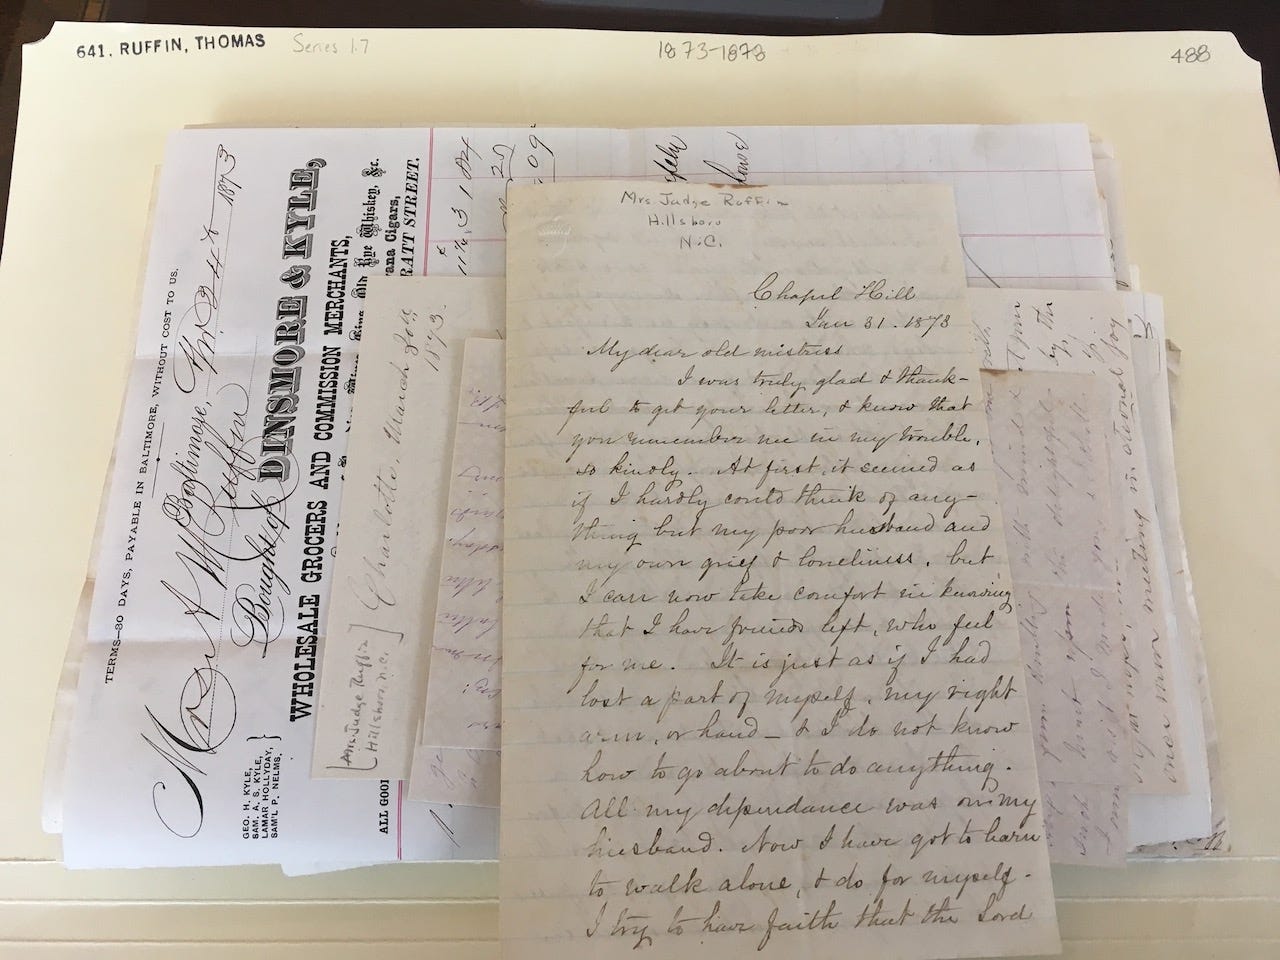 641. RUFFIN, THOMAS
Series 1.7
1873-1878
488
Mrs. Judge Ruffin
Hillsboro
N.C.
Chapel Hill
Jan 31. 1873
My dear old mistress
I was truly glad & thank-
ful to get your letter, & know that
you remember me in my trouble,
so kindly. At first, it seemed as
if I hardly could think of any-
thing but my poor husband and
my own grief & loneliness, but
I can now take comfort in knowing
that I have friends left, who feel
for me. It is just as if I had
lost a part of myself, my right
arm, or hand - & I do not know
how to go about to do anything.
All my dependance was on my
husband. Now I have got to learn
to walk alone, & do for myself-
I try to have faith that the Lord
TERMS—30 DAYS, PAYABLE IN BALTIMORE, WITHOUT COST TO US.
Baltimore, 24 1873
Ruffin
Bought of DINSMORE & KYLE,
WHOLESALE GROCERS AND COMMISSION MERCHANTS,
Rye Whiskey, &c.
Cigars,
RATT STREET.
GEO. H. KYLE,
SAM. A. S. KYLE,
LAMAR HOLLYDAY,
SAM'L P. NELMS,
ALL GOO
Charlotte, March
1873.
[Mrs. Judge Ruffin
Hillsboro, N.C.]
once more meeting in eternal joy